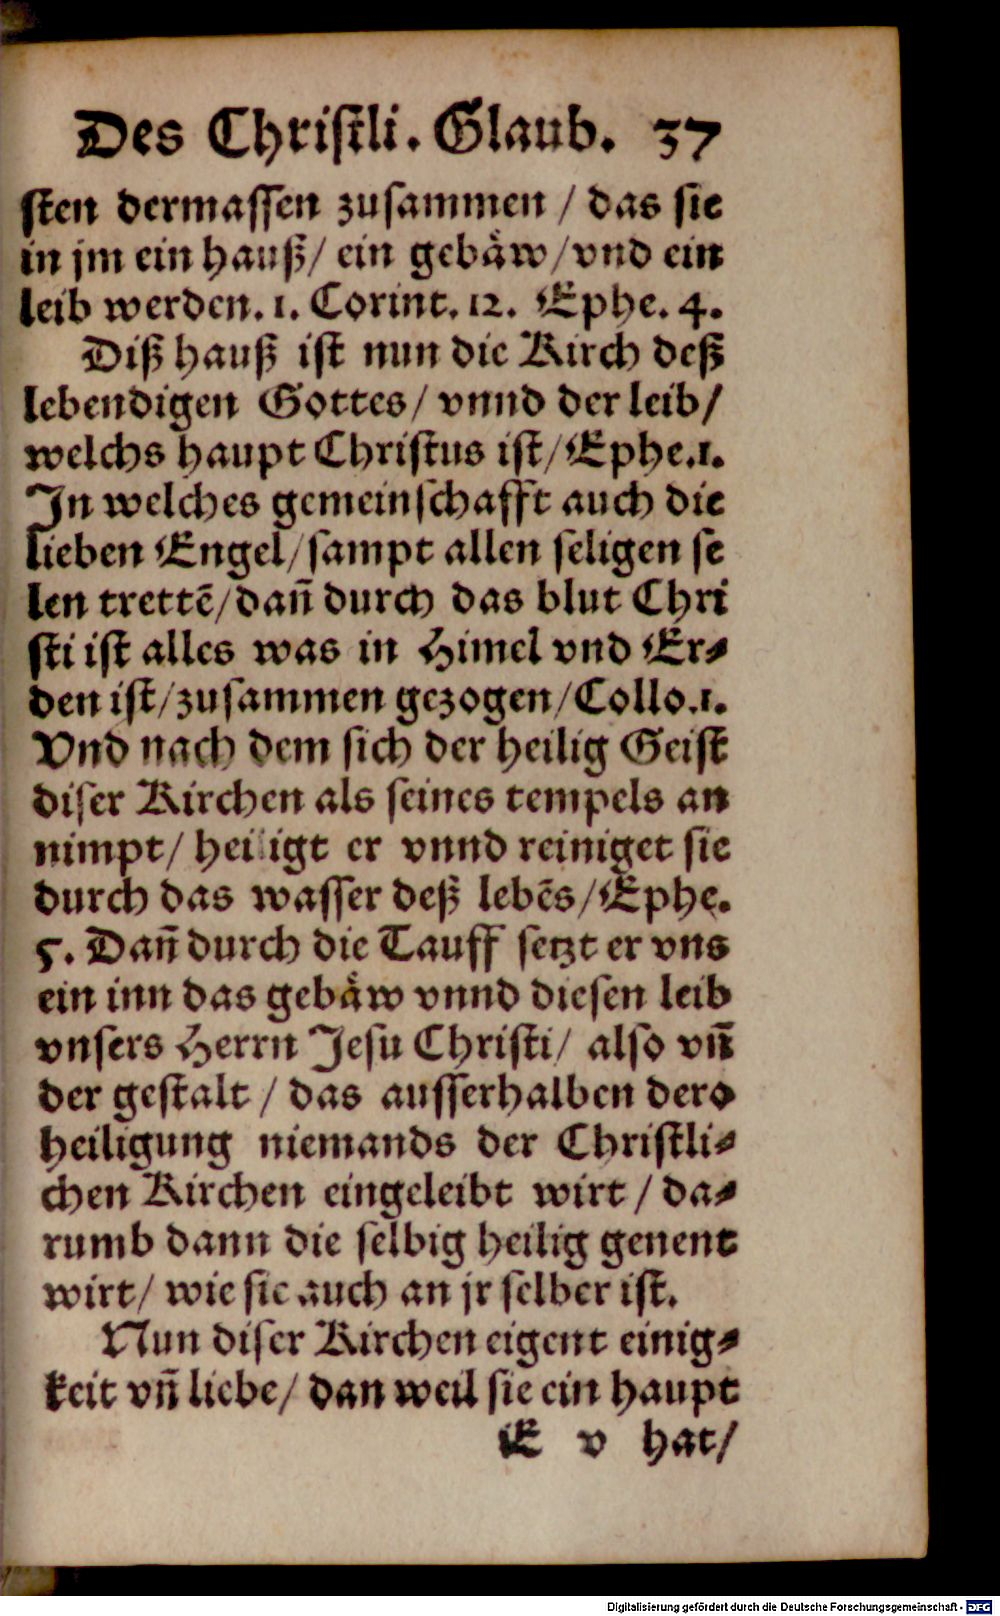 Des Christli. Glaub. 37
sten dermassen zusammen / das sie
in jm ein hauß / ein gebåw / vnd ein
leib werden. 1. Corint. 12. Ephe. 4.
Diß hauß ist nun die Kirch deß
lebendigen Gottes / vnnd der leib /
welchs haupt Christus ist / Ephe. 1.
In welches gemeinschafft auch die
lieben Engel / sampt allen seligen se
len trettē / dañ durch das blut Chri
sti ist alles was in Himel vnd Er-
den ist / zusammen gezogen / Collo. 1.
Vnd nach dem sich der heilig Geist
diser Kirchen als seines tempels an
nimpt / heiligt er vnnd reiniget sie
durch das wasser deß lebēs / Ephe.
5. Dañ durch die Tauff setzt er vns
ein inn das gebåw vnnd diesen leib
vnsers Herrn Jesu Christi / also vñ
der gestalt / das ausserhalben dero
heiligung niemands der Christli-
chen Kirchen eingeleibt wirt / da-
rumb dann die selbig heilig genent
wirt / wie sie auch an jr selber ist.
Nun diser Kirchen eigent einig-
keit vñ liebe / dan weil sie ein haupt
E v hat /
Digitalisierung gefördert durch die Deutsche Forschungsgemeinschaft - DFG